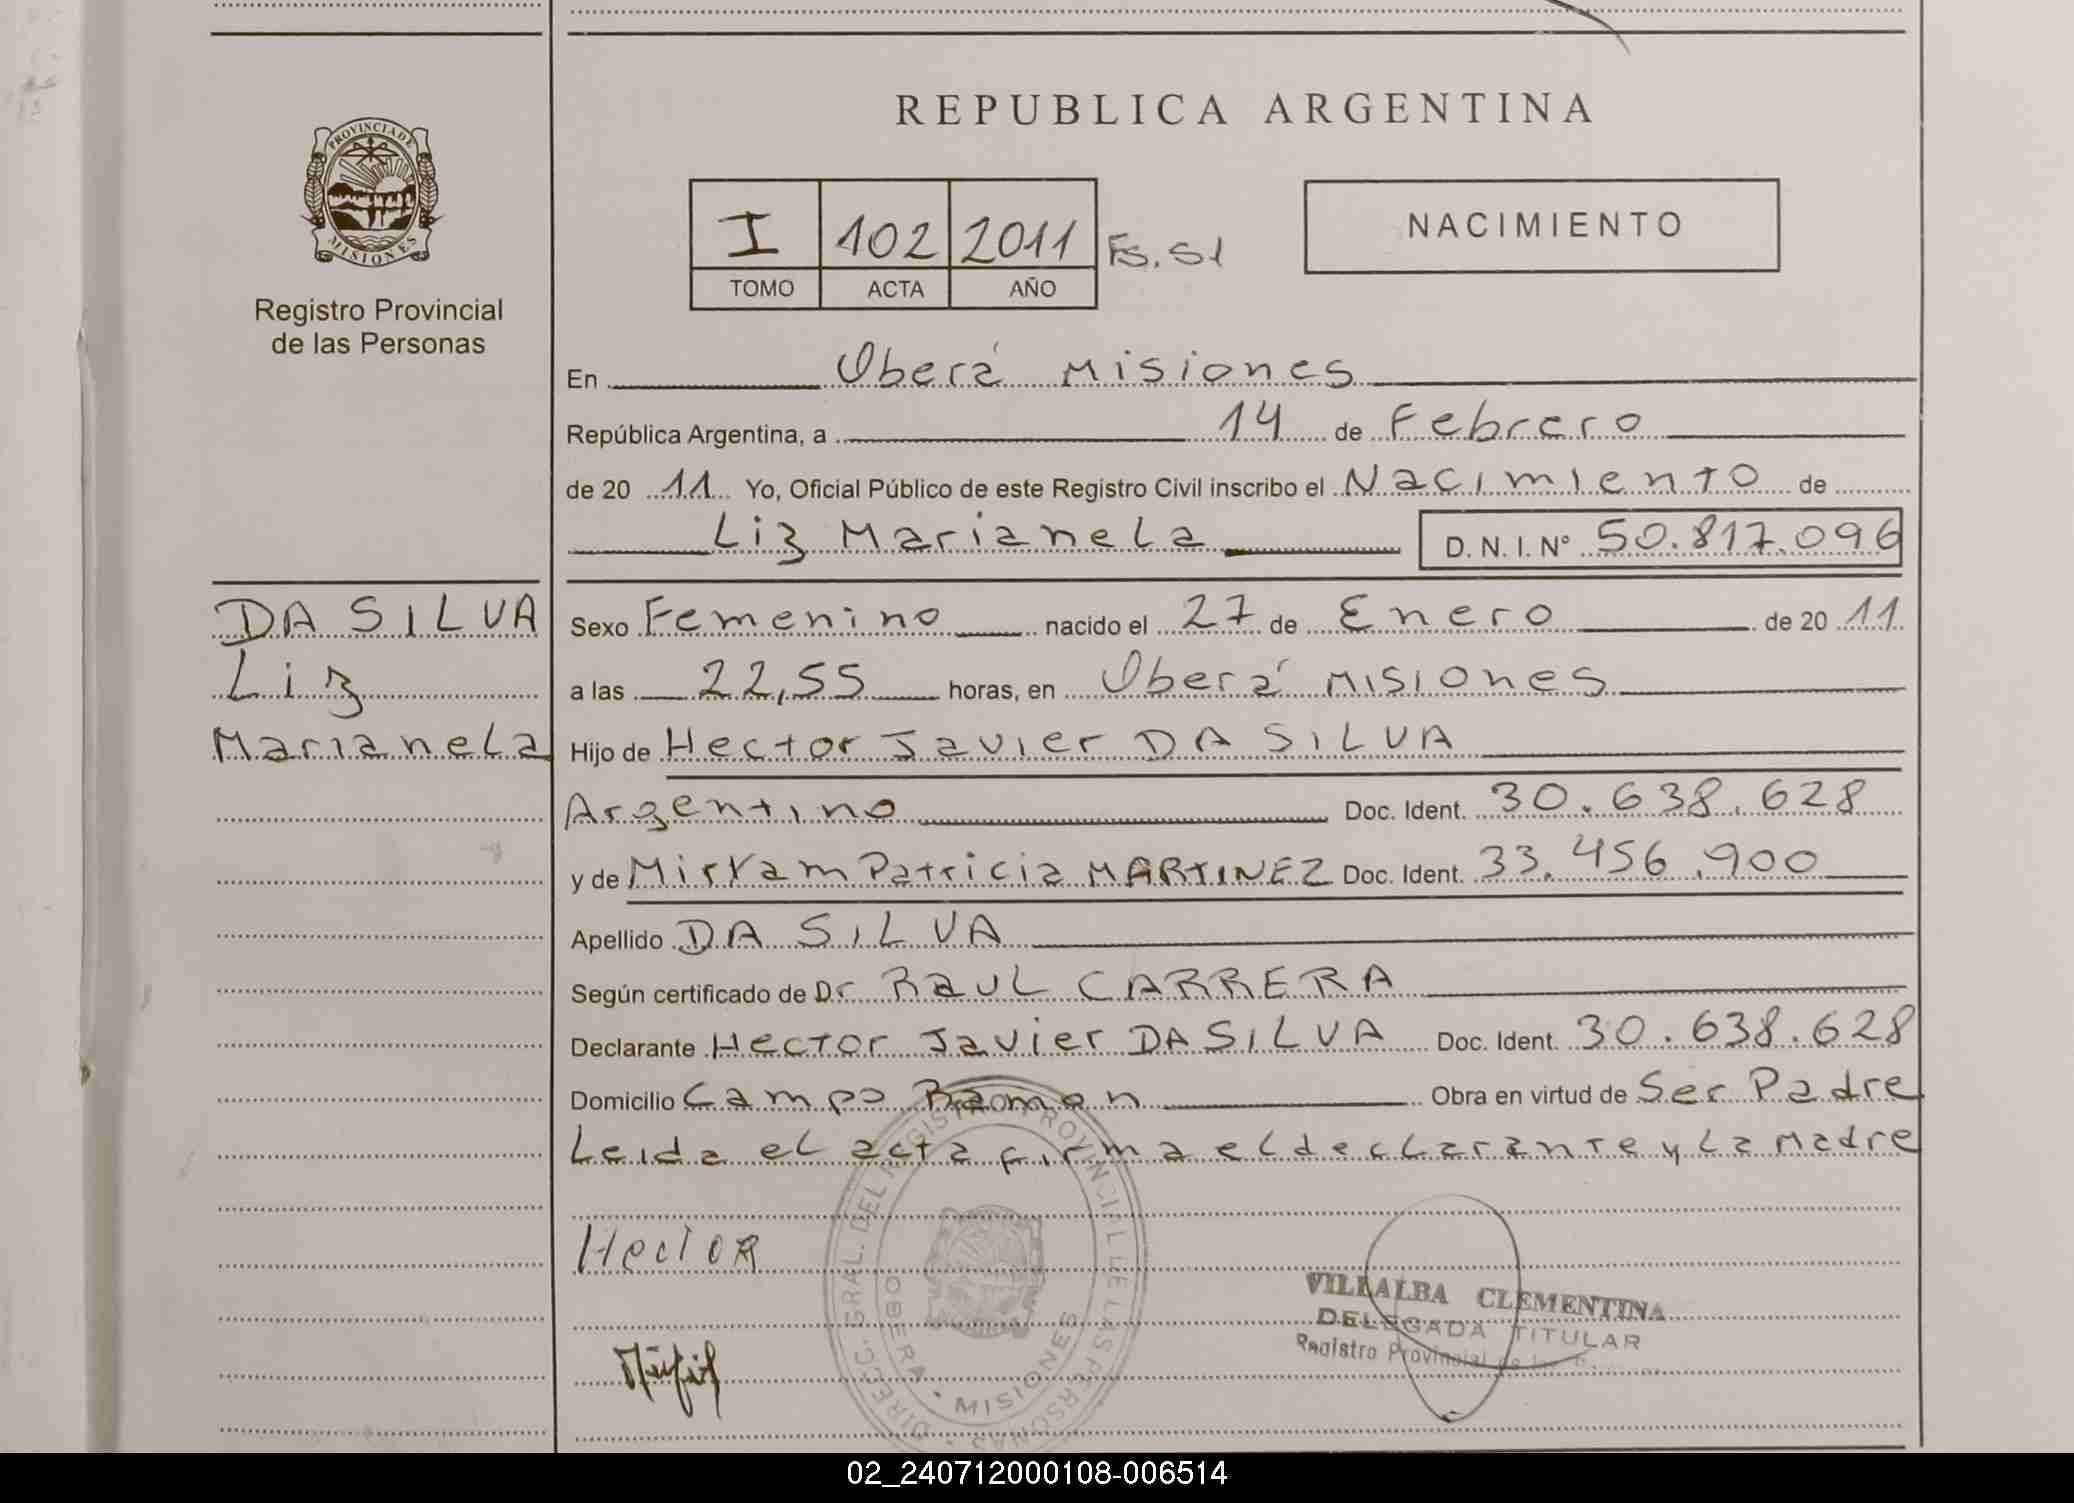 REPUBLICA ARGENTINA
PROVINCIA DE
MISIONES
Registro Provincial
de las Personas
I 102 2011 Fs. 51
TOMO ACTA AÑO
NACIMIENTO
En Oberá Misiones
República Argentina, a 14 de Febrero
de 20 11 Yo, Oficial Público de este Registro Civil inscribo el Nacimiento de
Liz Marianela D. N. I. Nº 50.817.096
DA SILVA
Liz
Marianela
Sexo Femenino nacido el 27 de Enero de 20 11
a las 22,55 horas, en Oberá Misiones
Hijo de Hector Javier DA SILVA
Argentino Doc. Ident. 30.638.628
y de Miryam Patricia MARTINEZ Doc. Ident. 33.456.900
Apellido DA SILVA
Según certificado de Dr RAUL CARRERA
Declarante Hector Javier DA SILVA Doc. Ident. 30.638.628
Domicilio Campo Ramon Obra en virtud de Ser Padre
Leida el acta firma el declarante y La Madre
Hector
DIRECC. GRAL. DEL REGISTRO PROVINCIAL DE LAS PERSONAS
OBERA - MISIONES
VILLALBA CLEMENTINA
DELEGADA TITULAR
Registro Provincial de las
02_240712000108-006514